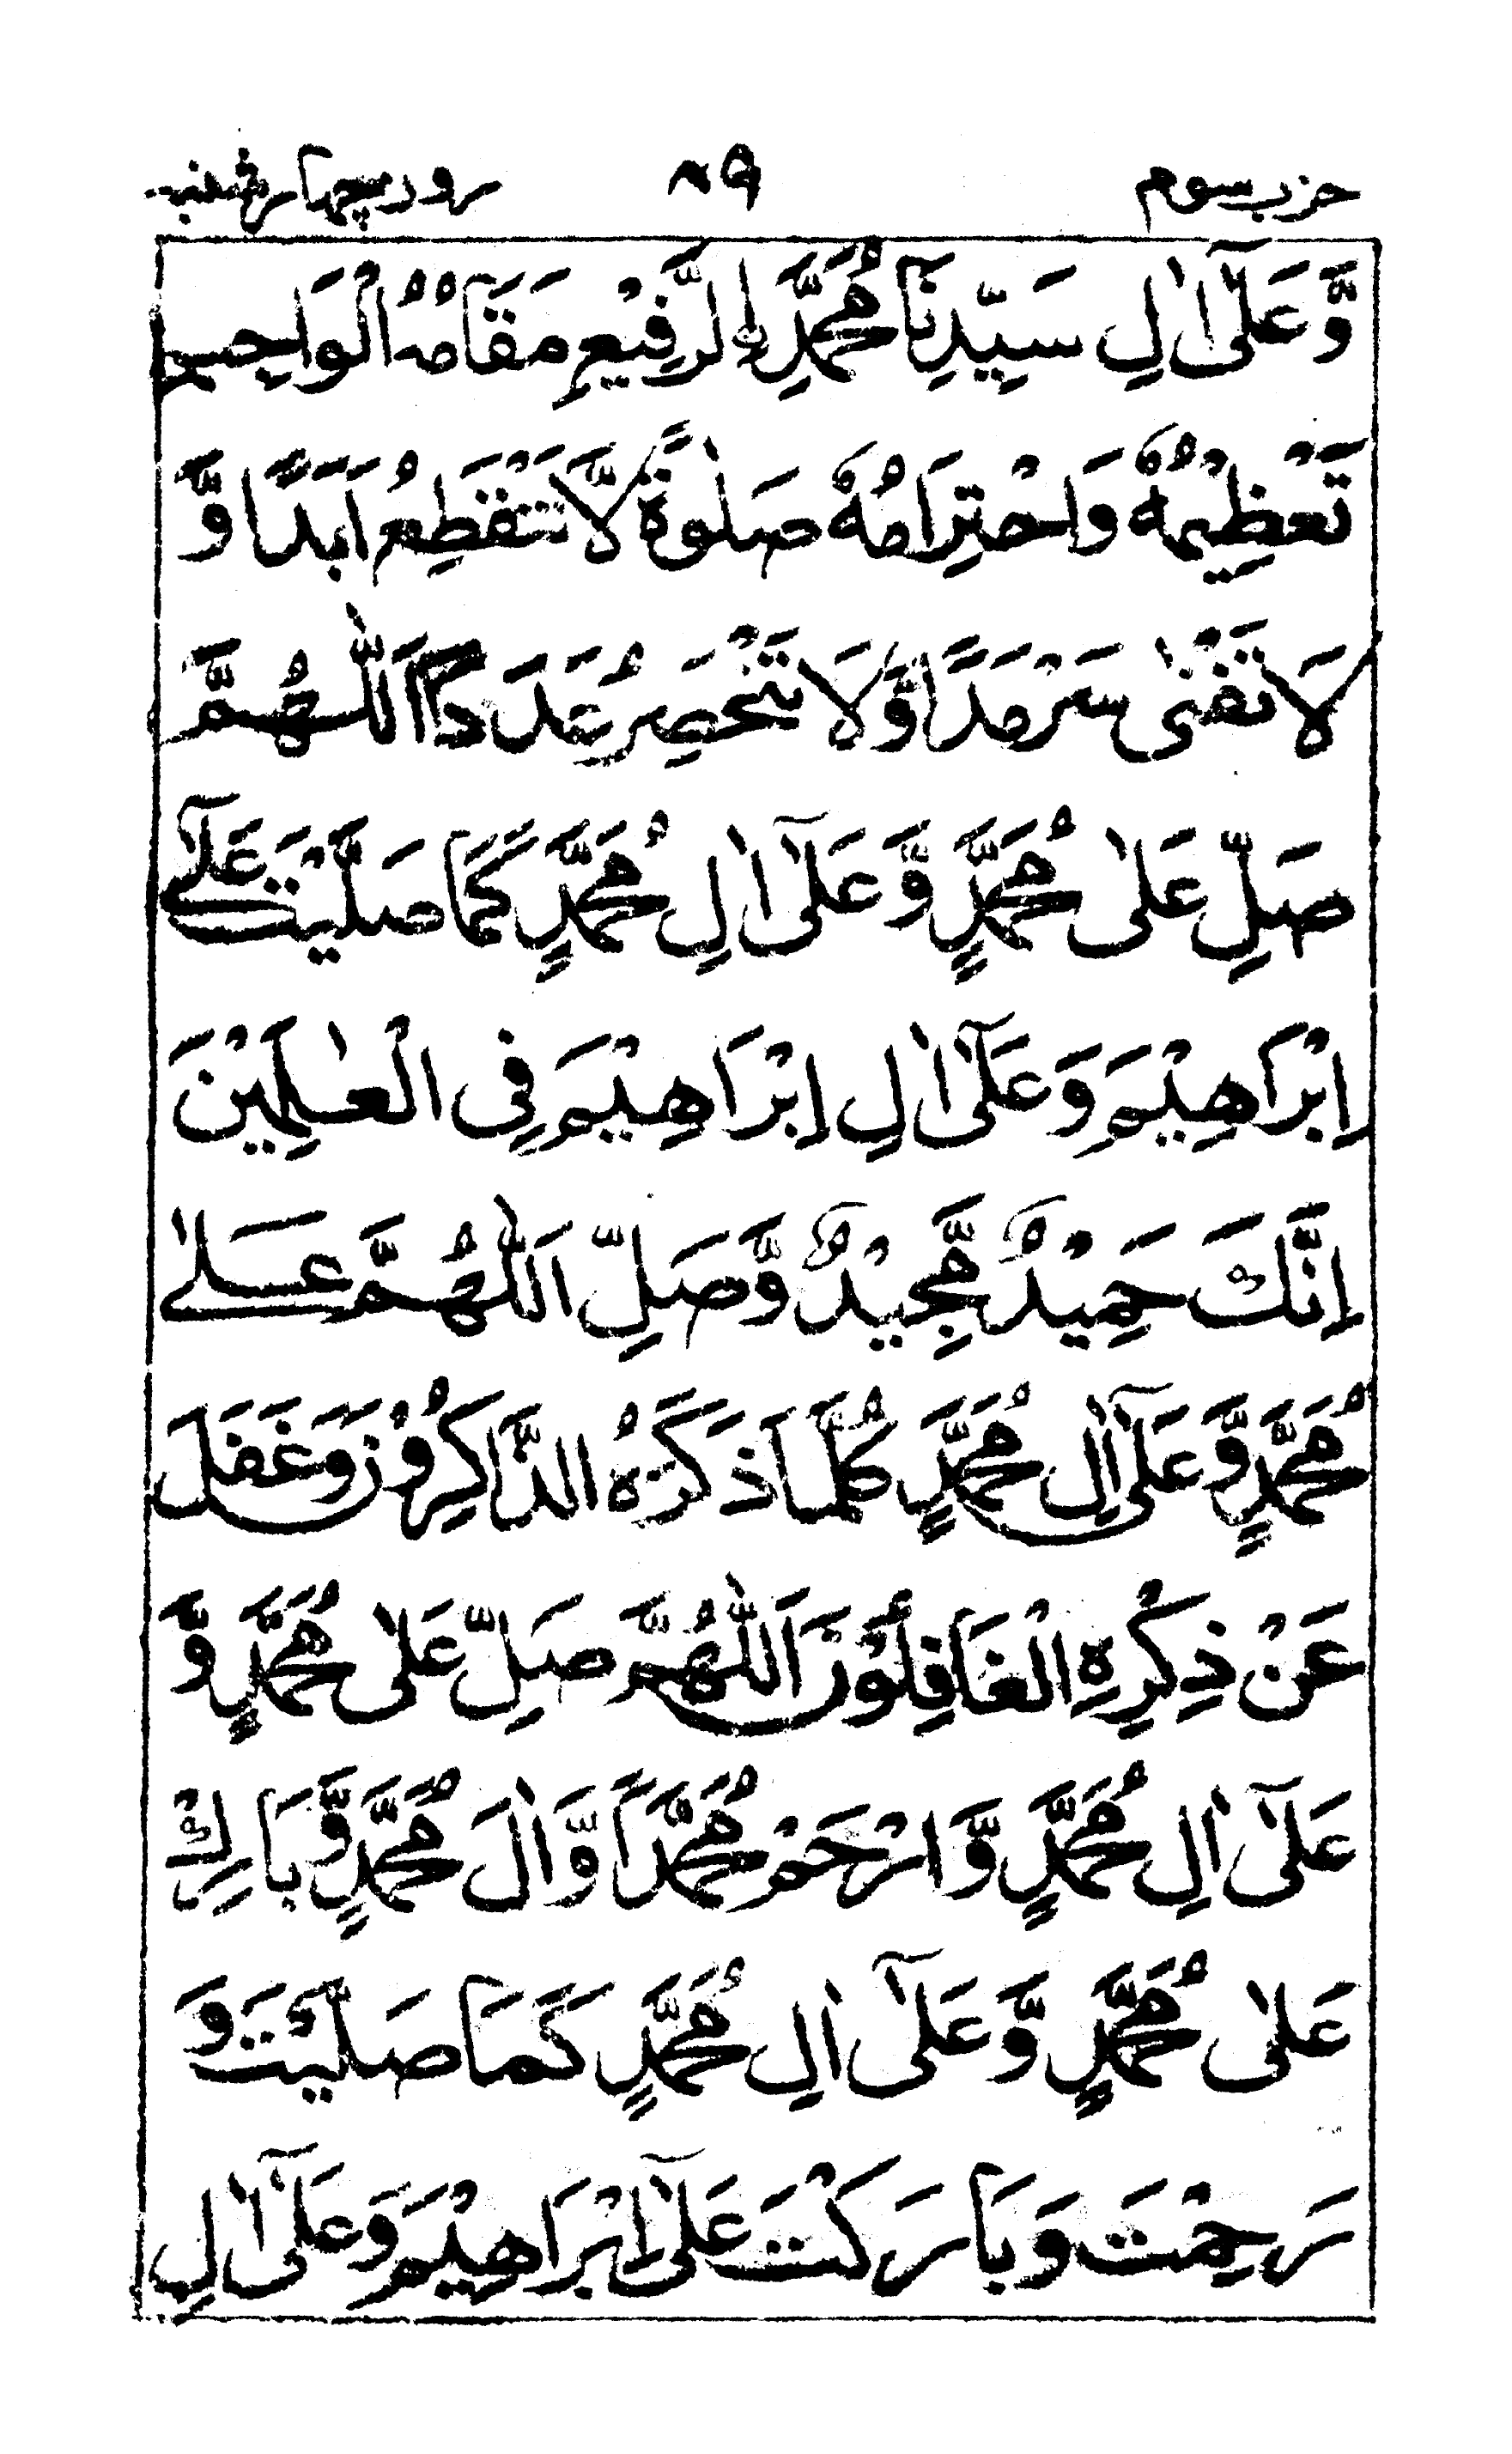 حزب سوم ۸۹ روز چهارشنبه
وَّعَلٰٓى اٰلِ سَيِّدِنَا مُحَمَّدِ ۣالرَّفِيْعِ مَقَامُهُ الْوَاجِبِ
تَعْظِيْمُهٗ وَاحْتِرَامُهٗ صَلٰوةً لَّا تَنْقَطِعُ اَبَدًا وَّ
لَا تَفْنٰى سَرْمَدًا وَّلَا تَنْحَصِرُ عَدَدًا اَللّٰهُمَّ
صَلِّ عَلٰى مُحَمَّدٍ وَّعَلٰٓى اٰلِ مُحَمَّدٍ كَمَا صَلَّيْتَ عَلٰٓى
اِبْرَاهِيْمَ وَعَلٰٓى اٰلِ اِبْرَاهِيْمَ فِى الْعٰلَمِيْنَ
اِنَّكَ حَمِيْدٌ مَّجِيْدٌ وَّصَلِّ اللّٰهُمَّ عَلٰى
مُحَمَّدٍ وَّعَلٰٓى اٰلِ مُحَمَّدٍ كُلَّمَا ذَكَرَهُ الذَّاكِرُوْنَ وَغَفَلَ
عَنْ ذِكْرِهِ الْغَافِلُوْنَ اَللّٰهُمَّ صَلِّ عَلٰى مُحَمَّدٍ وَّ
عَلٰٓى اٰلِ مُحَمَّدٍ وَّارْحَمْ مُحَمَّدًا وَّاٰلَ مُحَمَّدٍ وَّبَارِكْ
عَلٰى مُحَمَّدٍ وَّعَلٰٓى اٰلِ مُحَمَّدٍ كَمَا صَلَّيْتَ وَ
رَحِمْتَ وَبَارَكْتَ عَلٰٓى اِبْرَاهِيْمَ وَعَلٰٓى اٰلِ